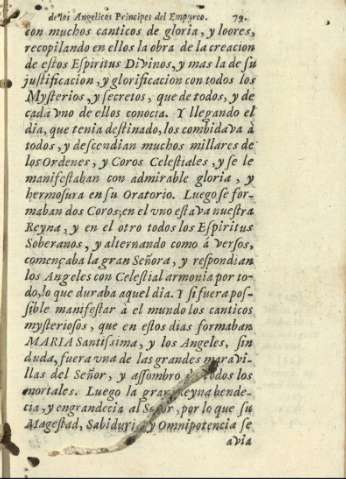 de los Angelicos Principes del Empyreo. 79.
con muchos canticos de gloria, y loores,
recopilando en ellos la obra de la creacion
de estos Espiritus Divinos, y mas la de su
justificacion, y glorificacion con todos los
Mysterios, y secretos, que de todos, y de
cada vno de ellos conocia. Y llegando el
dia, que tenia destinado, los combidava à
todos, y descendian muchos millares de
los Ordenes, y Coros Celestiales, y se le
manifestaban con admirable gloria, y
hermosura en su Oratorio. Luego se for-
maban dos Coros; en el vno estava nuestra
Reyna, y en el otro todos los Espiritus
Soberanos, y alternando como à versos,
començaba la gran Señora, y respondian
los Angeles con Celestial armonia por to-
do, lo que duraba aquel dia. Y si fuera pos-
sible manifestar à el mundo los canticos
mysteriosos, que en estos dias formaban
MARIA Santissima, y los Angeles, sin
duda, fuera vna de las grandes maravi-
llas del Señor, y assombro de todos los
mortales. Luego la gran Reyna bende-
cia, y engrandecia al Señor, por lo que su
Magestad, Sabiduria, y Omnipotencia se
avia